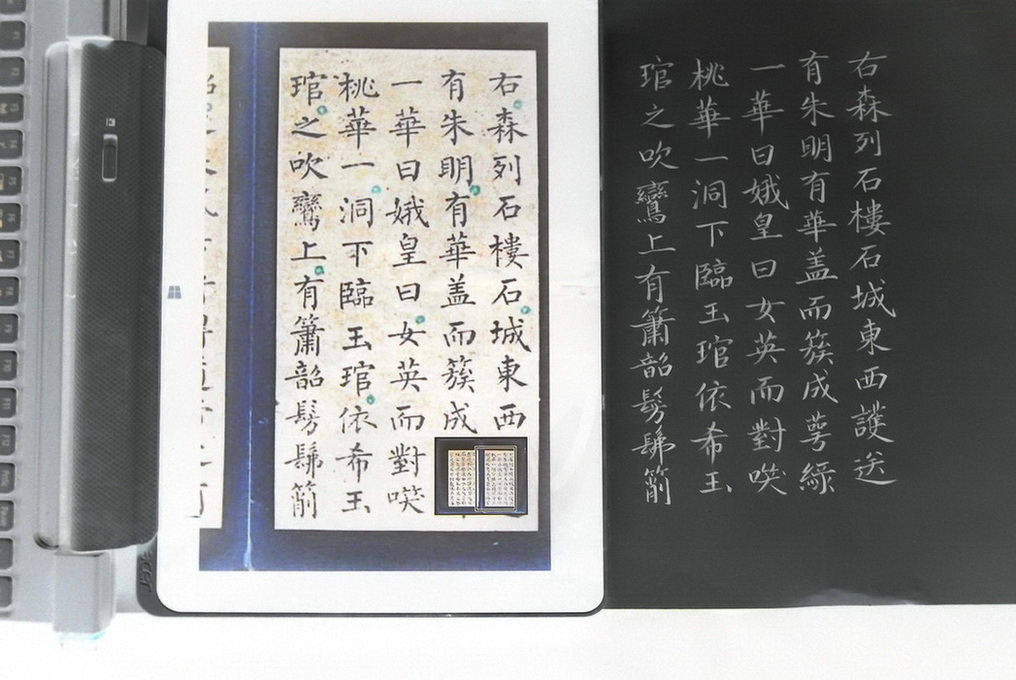 右森列石樓石城東西
有朱明有華盖而簇成
一華曰娥皇曰女英而對㗛
桃華一洞下臨玉琯依希玉
琯之吹鸞上有簫韶髣髴箾
右森列石樓石城東西護送
有朱明有華盖而簇成萼綠
一華曰娥皇曰女英而對㗛
桃華一洞下臨玉琯依希玉
琯之吹鸞上有簫韶髣髴箾